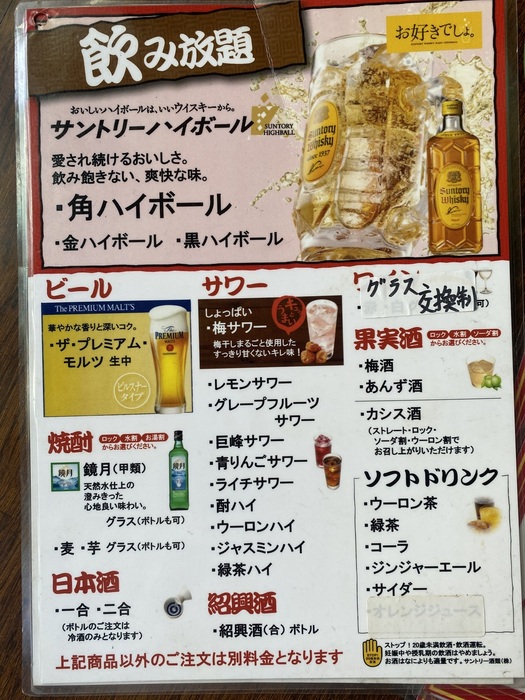 飲み放題
お好きでしょ。
おいしいハイボールは、いいウイスキーから。
サントリーハイボール
SUNTORY
HIGHBALL
愛され続けるおいしさ。
飲み飽きない、爽快な味。
・角ハイボール
・金ハイボール ・黒ハイボール
Suntory
Whisky
SINCE 1937
Suntory
Whisky
ビール
The PREMIUM MALT'S
華やかな香りと深いコク。
・ザ・プレミアム・
モルツ 生中
ピルスナー
タイプ
PREMIUM
焼酎
ロック 水割 お湯割
からお選びください。
鏡月
鏡月(甲類)
天然水仕上の
澄みきった
心地良い味わい。
グラス(ボトルも可)
鏡月
・麦 ・芋 グラス(ボトルも可)
日本酒
・一合 ・二合
(ボトルのご注文は
冷酒のみとなります)
サワー
しょっぱい
・梅サワー
梅干しまるごと使用した
すっきり甘くないキレ味!
・レモンサワー
・グレープフルーツ
サワー
・巨峰サワー
・青りんごサワー
・ライチサワー
・酎ハイ
・ウーロンハイ
・ジャスミンハイ
・緑茶ハイ
紹興酒
・紹興酒(合) ボトル
グラス交換制
可)
果実酒
ロック 水割 ソーダ割
からお選びください。
・梅酒
・あんず酒
・カシス酒
(ストレート・ロック・
ソーダ割・ウーロン割で
お召し上がりいただけます)
ソフトドリンク
・ウーロン茶
・緑茶
・コーラ
・ジンジャーエール
・サイダー
・オレンジジュース
上記商品以外のご注文は別料金となります
ストップ!20歳未満飲酒・飲酒運転。
妊娠中や授乳期の飲酒はやめましょう。
お酒はなによりも適量です。サントリー酒類(株)